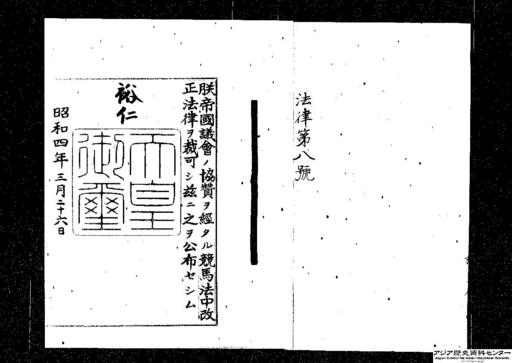 法律第八號
朕帝國議會ノ協贊ヲ經タル競馬法中改
正法律ヲ裁可シ玆ニ之ヲ公布セシム
裕仁
天皇
御璽
昭和四年三月二十六日
アジア歴史資料センター
Japan Center for Asian Historical Records